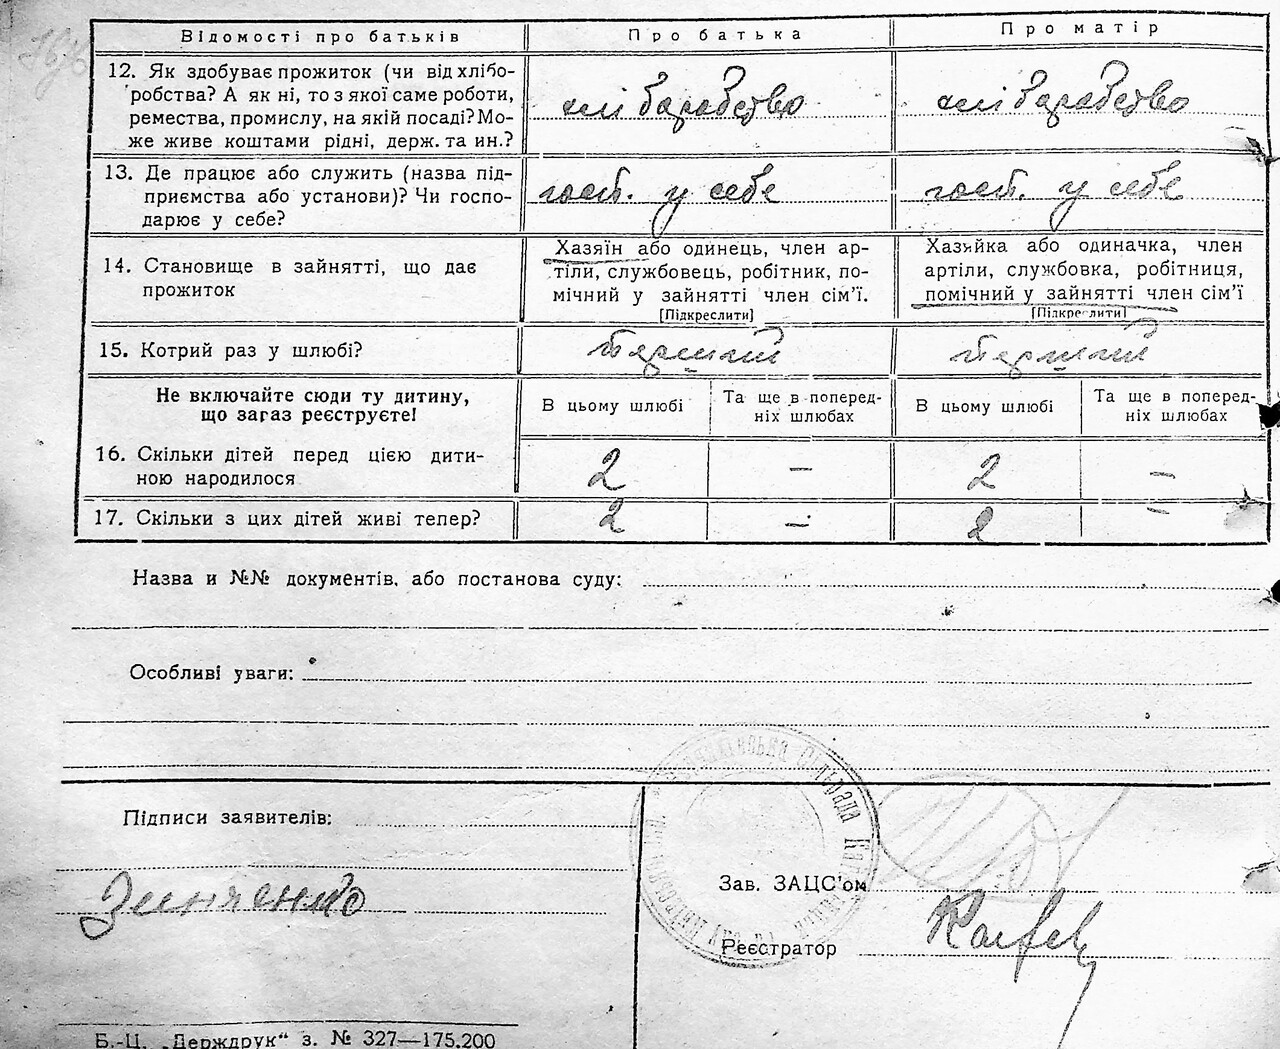 Відомості про батьків Про батька Про матір
12. Як здобуває прожиток (чи від хлібо-
робства? А як ні, то з якої саме роботи,
ремества, промислу, на якій посаді? Мо-
же живе коштами рідні, держ. та ин.?
хліборобство хліборобство
13. Де працює або служить (назва під-
приємства або установи)? Чи госпо-
дарює у себе?
госп. у себе госп. у себе
14. Становище в зайнятті, що дає
прожиток
Хазяїн або одинець, член ар-
тіли, службовець, робітник, по-
мічний у зайнятті член сім'ї.
[Підкреслити]
Хазяйка або одиначка, член
артіли, службовка, робітниця,
помічний у зайнятті член сім'ї
[Підкреслити]
15. Котрий раз у шлюбі? перший перший
Не включайте сюди ту дитину,
що зараз реєструєте!
В цьому шлюбі
Та ще в поперед-
ніх шлюбах
В цьому шлюбі
Та ще в поперед-
ніх шлюбах
16. Скільки дітей перед цією дити-
ною народилося
2 — 2 —
17. Скільки з цих дітей живі тепер? 2 — 2 —
Назва и №№ документів, або постанова суду:
Особливі уваги:
Підписи заявителів:
Зинченко
Сільрада
Зав. ЗАЦС'ом
Реєстратор
Б.-Ц. „Держдрук“ з. № 327—175.200